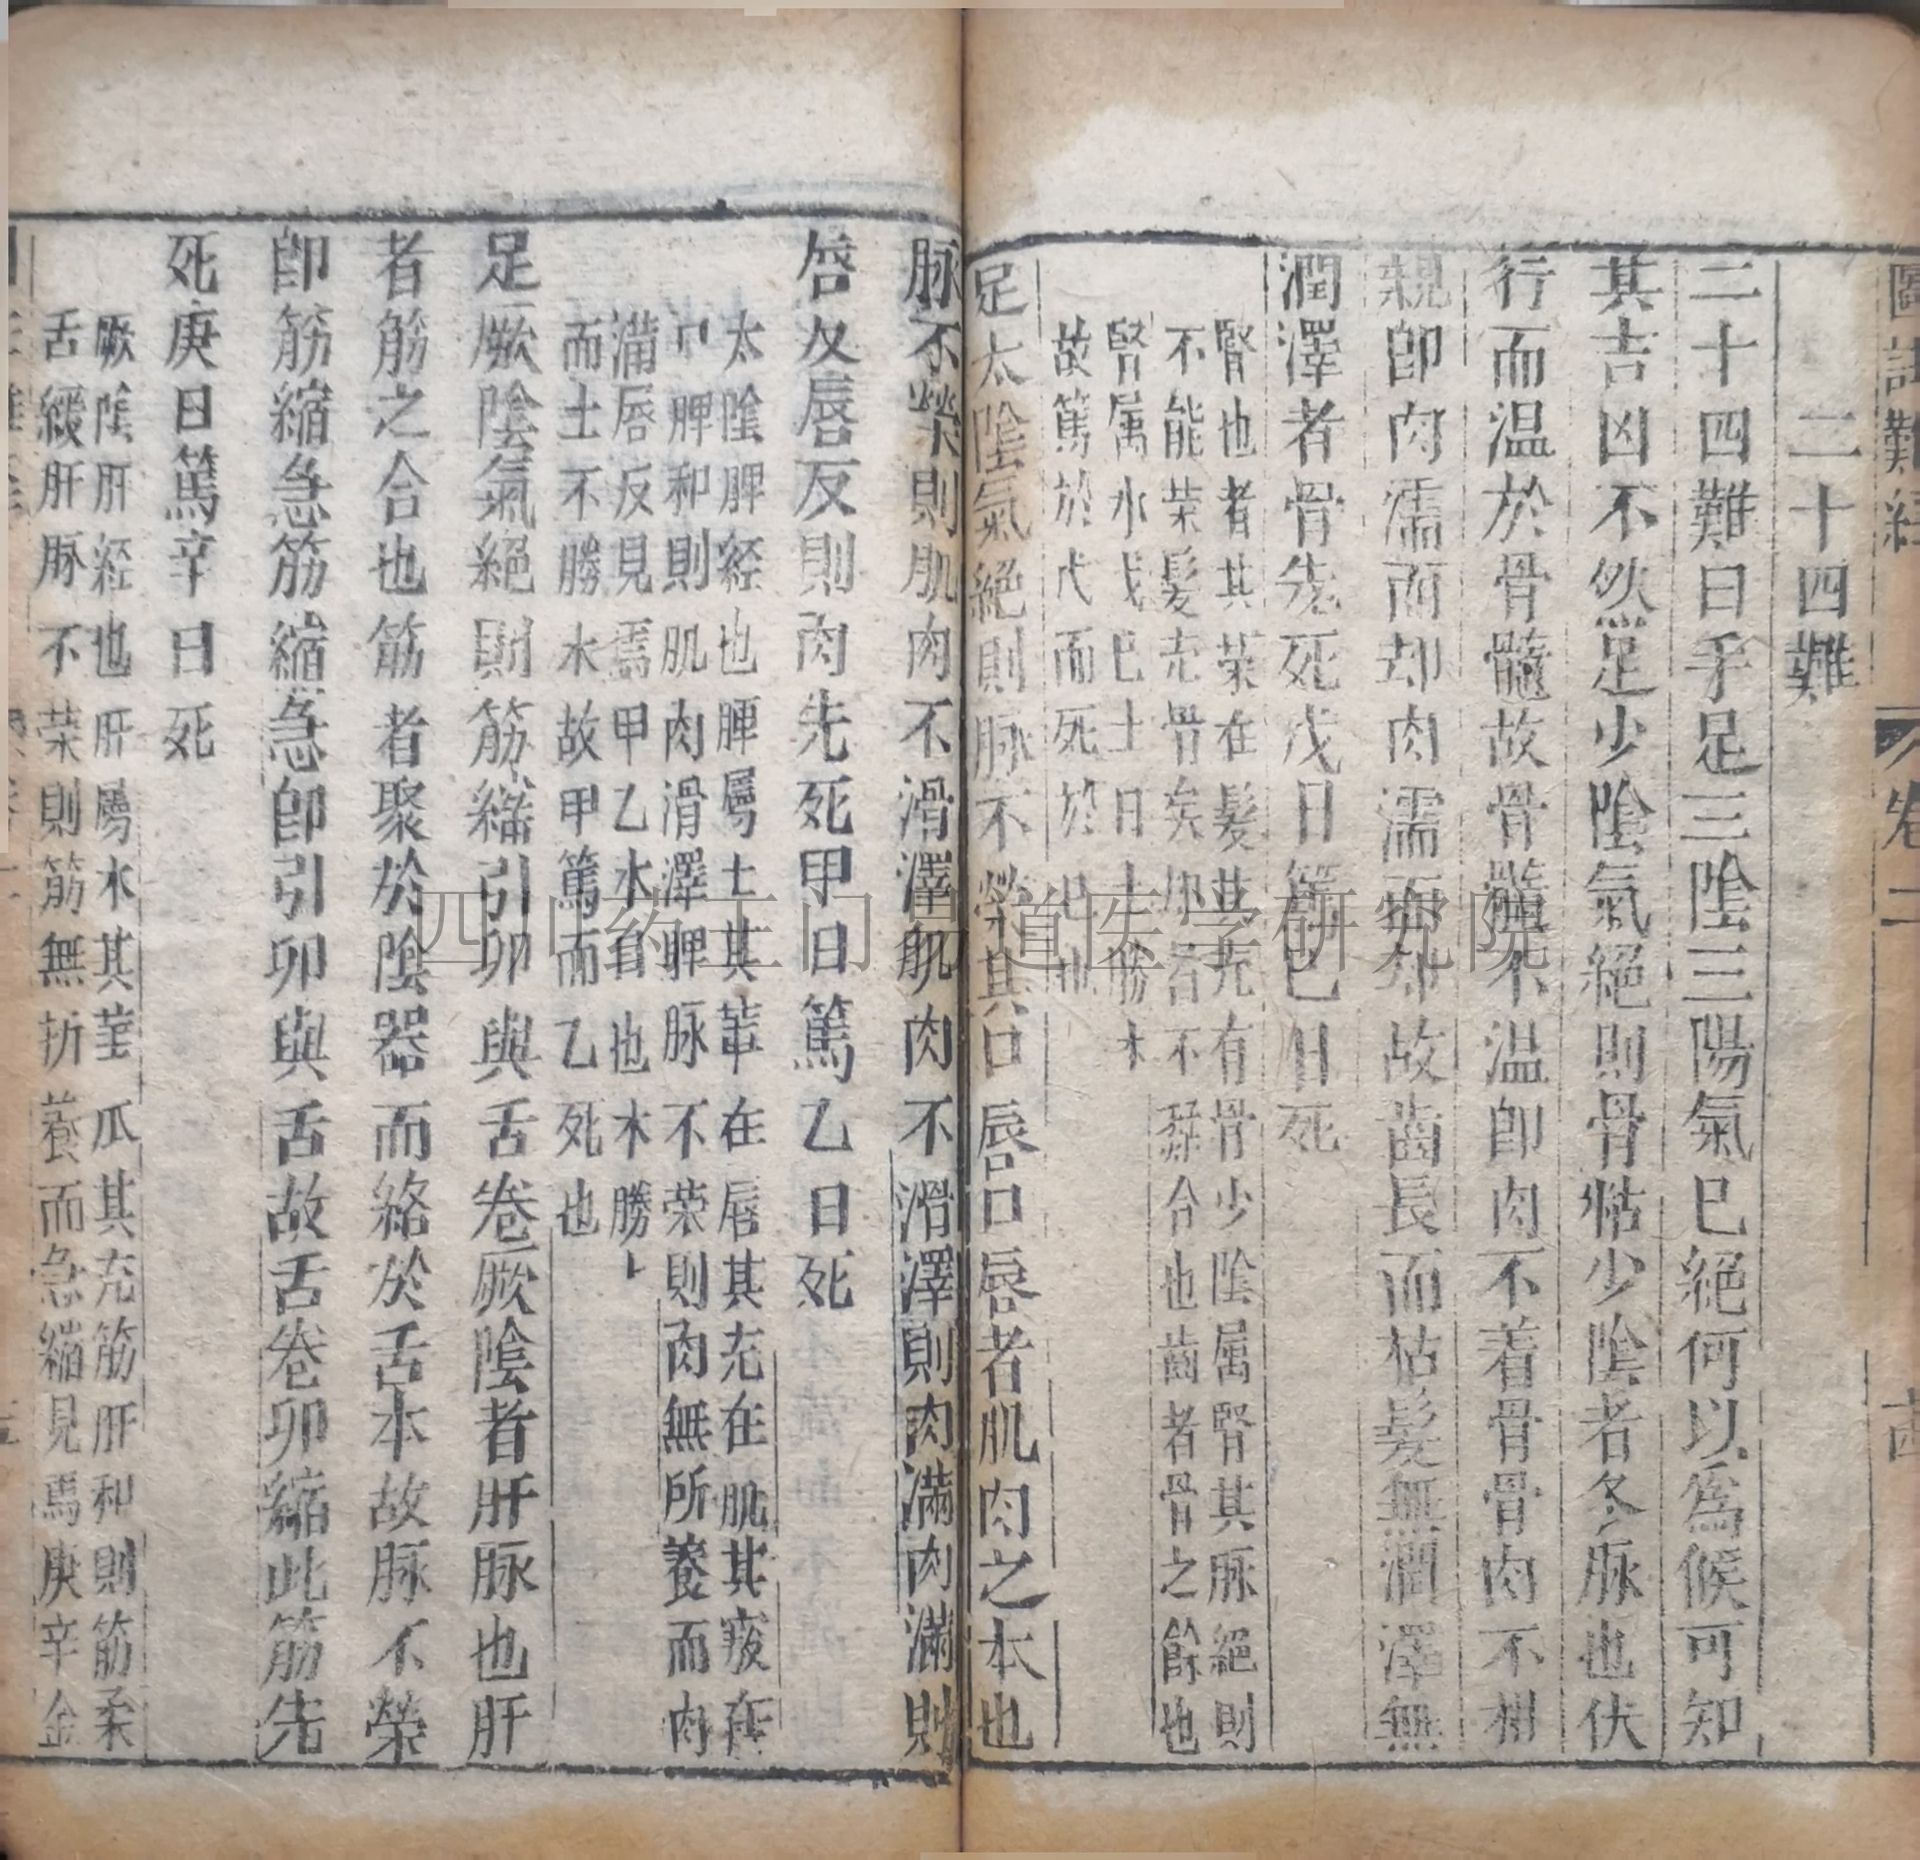 圖註難經
卷二
二十四難
二十四難曰手足三陰三陽氣已絕何以爲候可知
其吉凶不然足少陰氣絕則骨枯少陰者冬脉也伏
行而温於骨髓故骨髓不温卽肉不着骨骨肉不相
親卽肉濡而却肉濡而却故齒長而枯髮無潤澤無
潤澤者骨先死戊日篤巳日死
腎也者其荣在髮其充有骨少陰属腎其脉絕則
不能荣髮充骨矣却者不合也齒者骨之餘也
腎属水戊巳土日土勝水
故篤於戊而死於巳也
足太陰氣絕則脉不榮其口唇口唇者肌肉之本也
脉不榮則肌肉不滑澤肌肉不滑澤則肉滿肉滿則
唇反唇反則肉先死甲日篤乙日死
太陰脾經也脾屬土其華在唇其充在肌其竅在
口脾和則肌肉滑澤脾脉不荣則肉無所養而肉
滿唇反見焉甲乙木日也木勝
而土不勝木故甲篤而乙死也
足厥陰氣絕則筋縮引卵與舌卷厥陰者肝脉也肝
者筋之合也筋者聚於陰器而絡於舌本故脉不榮
卽筋縮急筋縮急卽引卵與舌故舌卷卵縮此筋先
死庚日篤辛日死
厥陰肝經也肝屬木其華爪其充筋肝和則筋柔
舌緩肝脉不荣則筋無所養而急縮見焉庚辛金